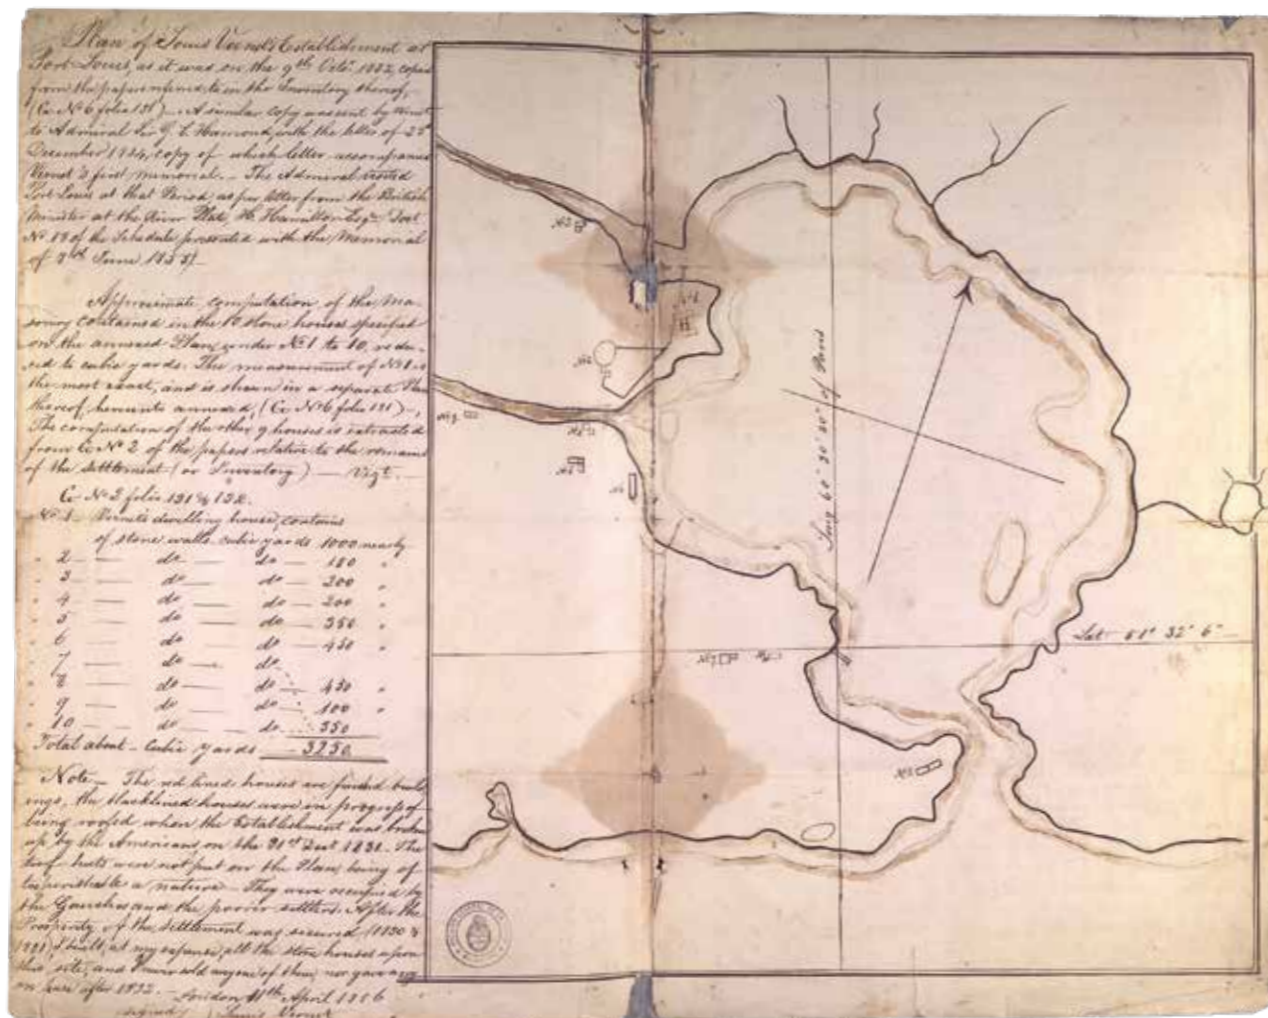 Plan of Louis Vernet's Establishment at
Port Louis, as it was on the 9th Octr. 1832, copied
from the papers referred to in the Inventory thereof,
(Ce No 6 folio 131) — A similar copy was sent by Vernet
to Admiral Sir G. E. Hamond, with the letter of
December 1834, copy of which letter accompanies
Vernet's first memorial. — The Admiral visited
Port Louis at that Period as per letter from the British
Minister at the River Plate, H. Hamilton Esqr.
No. 18 of the Schedule presented with the Memorial
of June
Approximate computation of the Ma-
sonry contained in the 10 stone houses specified
on the annexed Plan, under No. 1 to 10, redu-
ced to cubic yards. The measurement of No 1 is
the most exact, and is shewn in a separate Plan
thereof, hereunto annexed, (Ce No 6 folio 131) —,
The computation of the other 9 houses is extracted
from Ce No 2 of the papers relative to the remains
of the settlement (or Inventory) — Vizt. —
Ce No 2 folio 131 & 132.
No 1 — Vernet's dwelling house, contains
of stone walls cubic yards 1000 nearly
" 2 — do — do —
" 3 — do — do — 200 "
" 4 — do — do — 200 "
" 5 — do — do — 350 "
" 6 — do — do — 450 "
" 7 — do — do
" 8 — do — do — 450 "
" 9 — do — do — 100 "
" 10 — do 350
Total about — Cubic yards — 3250
Note — The red lined houses are finished build-
ings, the blacklined houses were in progress of
being roofed when the Establishment was broken
up by the Americans on the 31st Dect 1831. The
turf huts were not put on the Plan, being of
too perishable a nature — They were occupied by
the Gauchos and the poorer settlers. After the
Prosperity of the Settlement was secured (1830 &
1831) I built, at my expense, all the stone houses upon
this site, and I never sold any one of them, nor gave any
on lease after 1832. — London 11th April 1856
signed) Louis Vernet
Long 60° 30' 20" of Paris
Lat 51° 32' 6"